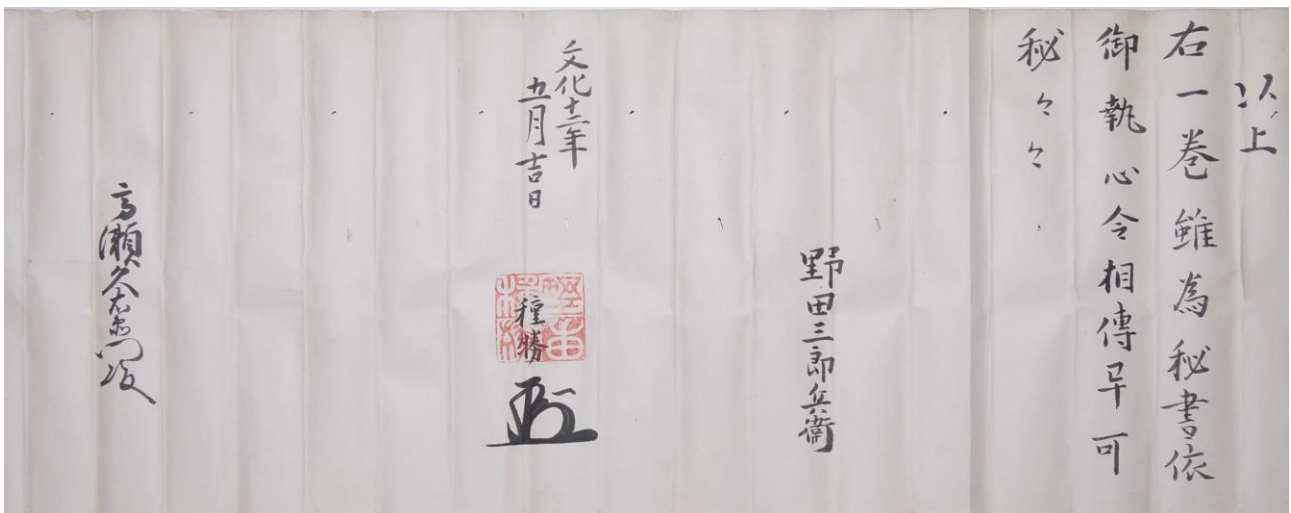 以上
右一巻雖為秘書依
御執心令相傳早可
秘々々
野田三郎兵衛
文化十二年
五月吉日
種勝
高瀬久右衛門殿